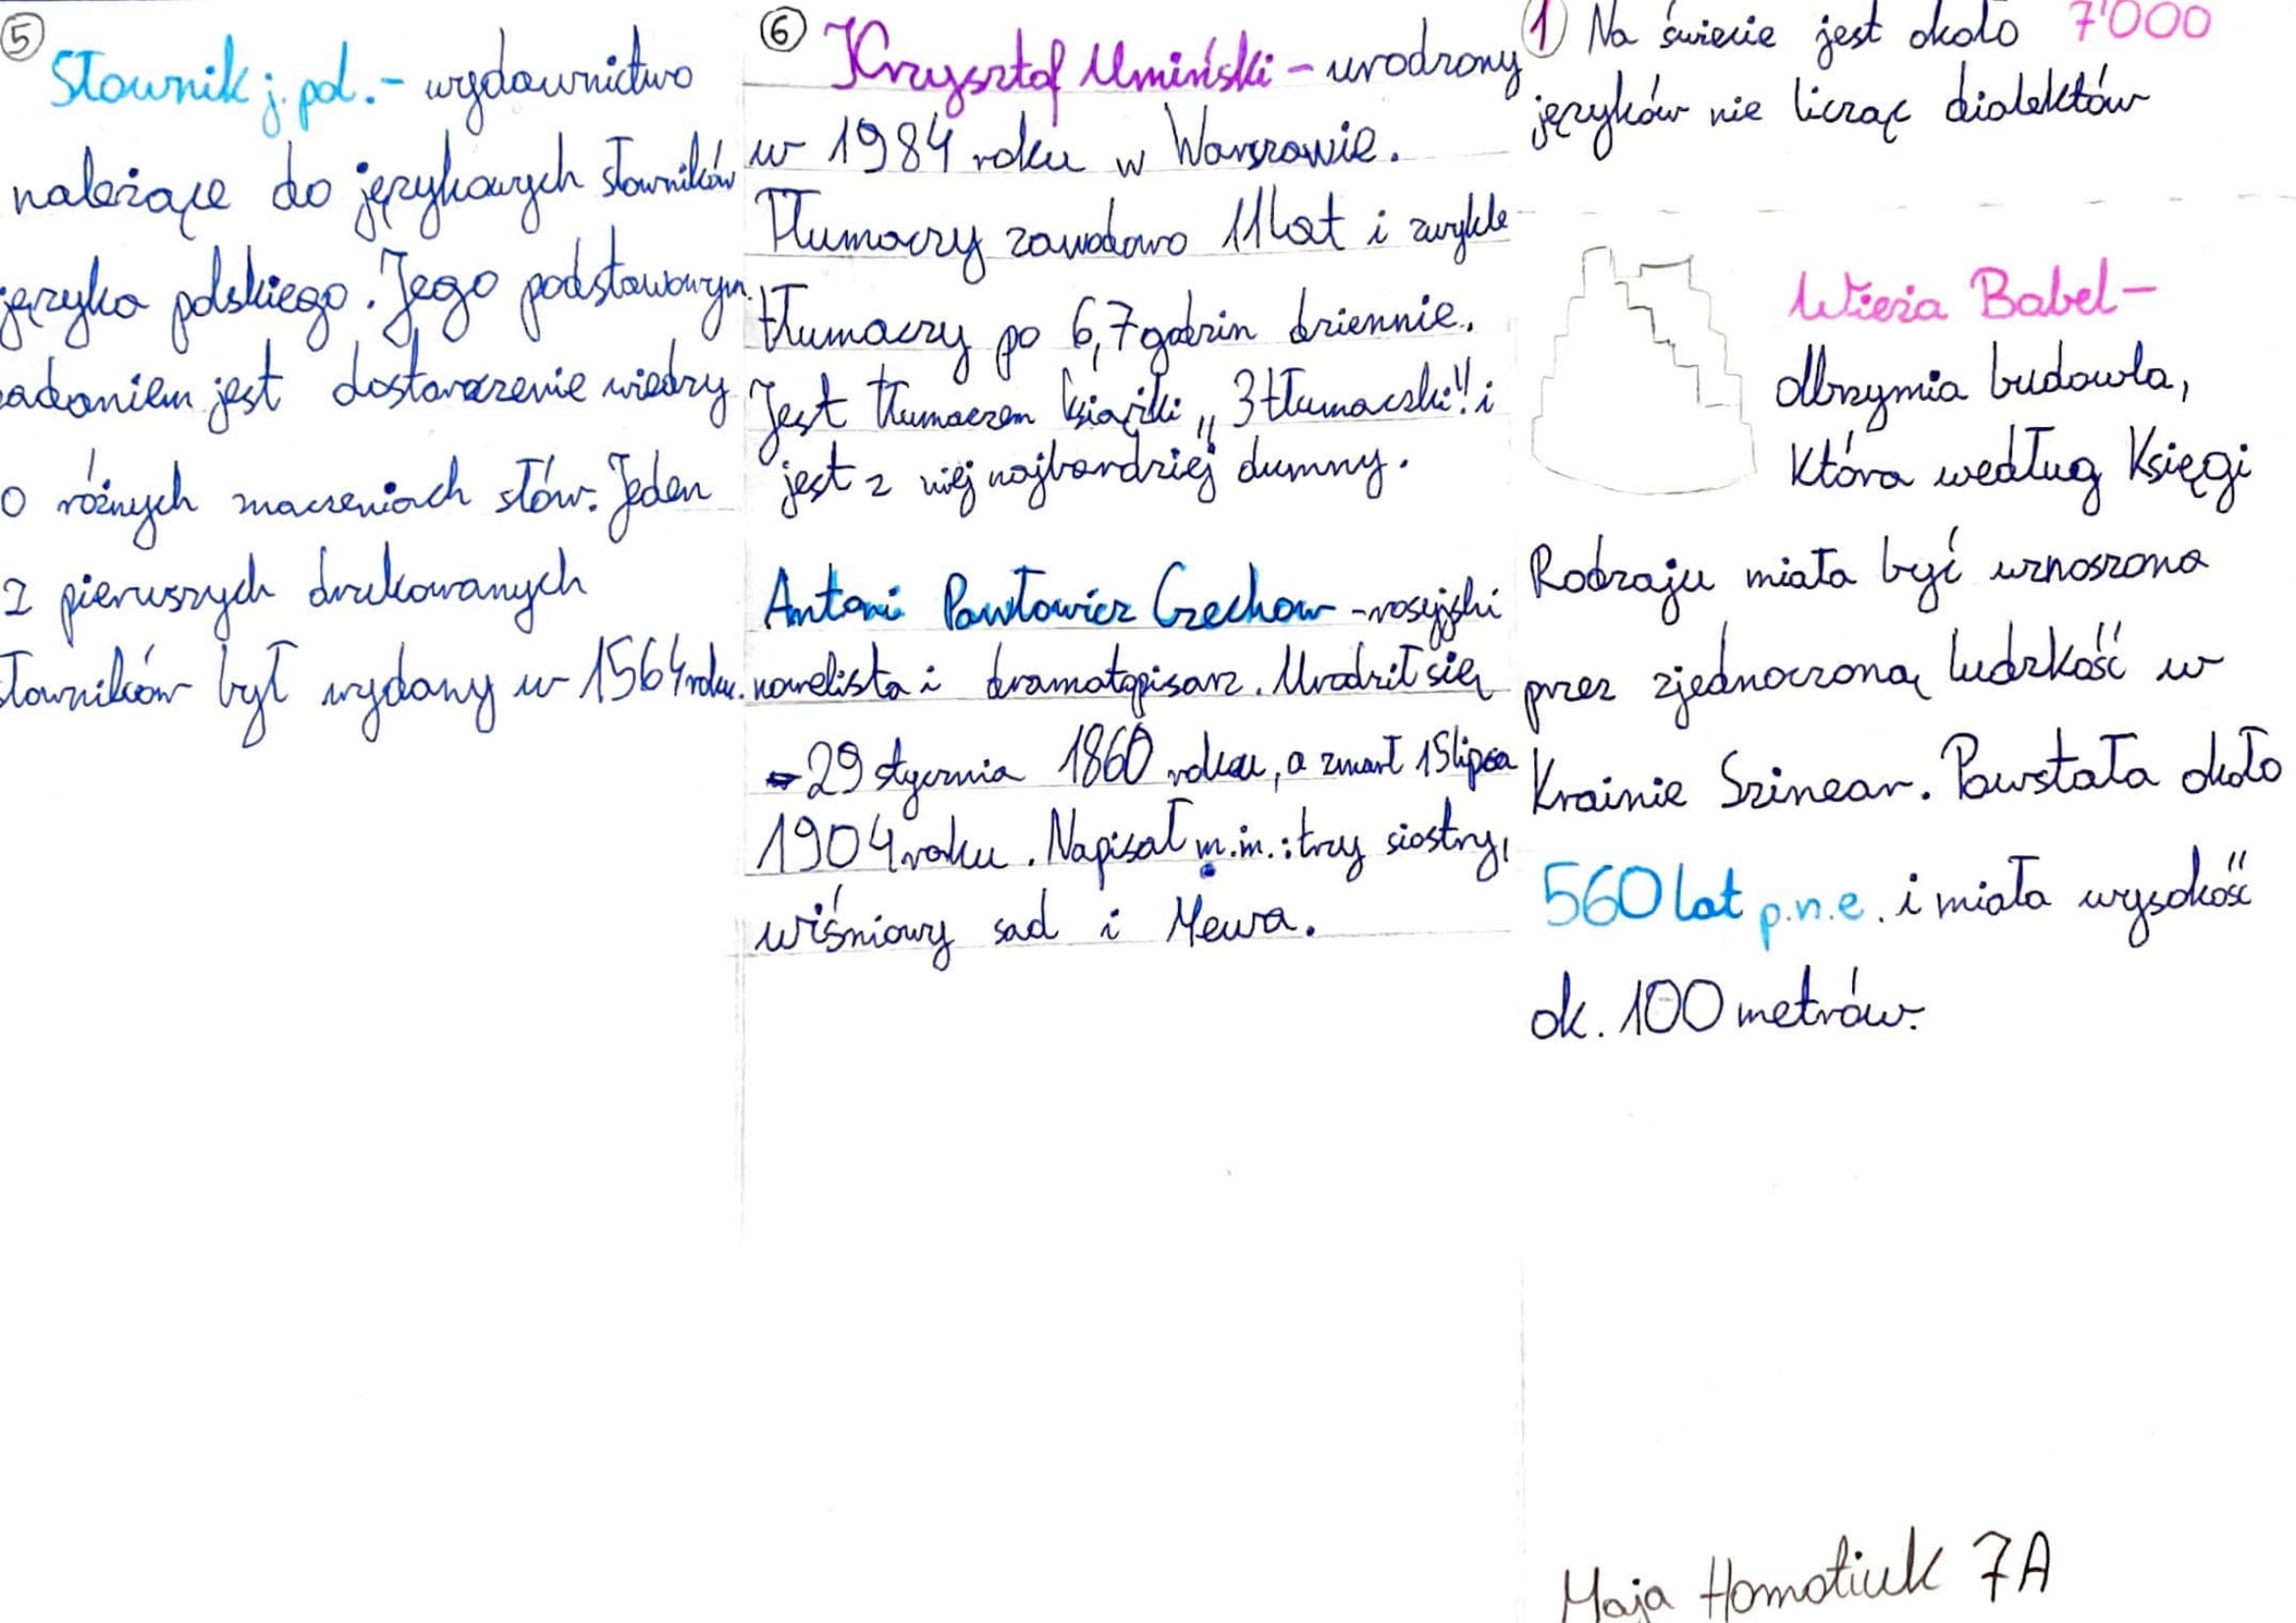 5
Słownik j. pol. - wydawnictwo
należące do językowych słowników
języka polskiego. Jego podstawowym
zadaniem jest dostarczenie wiedzy
o różnych znaczeniach słów. Jeden
z pierwszych drukowanych
słowników był wydany w 1564 roku.
6
Krzysztof Umiński - urodzony
w 1984 roku w Warszawie.
Tłumaczy zawodowo 11 lat i zwykle
tłumaczy po 6,7 godzin dziennie.
Jest tłumaczem książki „3 tłumaczki" i
jest z niej najbardziej dumny.
Antoni Pawłowicz Czechow - rosyjski
nowelista i dramatopisarz. Urodził się
29 stycznia 1860 roku, a zmarł 15 lipca
1904 roku. Napisał m.in.: trzy siostry,
wiśniowy sad i Mewa.
1 Na świecie jest około 7'000
języków nie licząc dialektów
Wieża Babel -
olbrzymia budowla,
która według Księgi
Rodzaju miała być wznoszona
przez zjednoczoną ludzkość w
Krainie Szinear. Powstała około
560 lat p.n.e. i miała wysokość
ok. 100 metrów.
Maja Homatiuk 7A